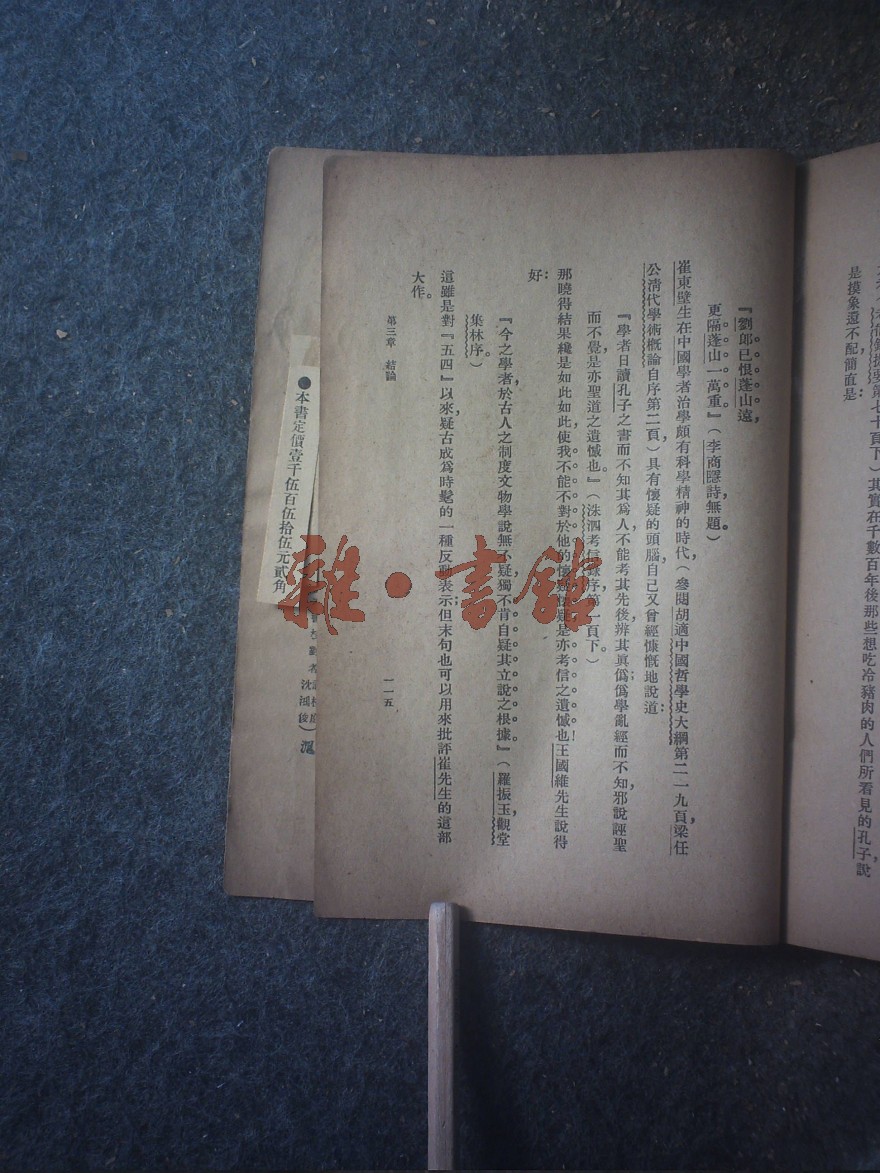 是摸象還不配簡直是：
『劉郎已恨蓬山遠，
更隔蓬山一萬重。』（李商隱詩，無題。）
崔東壁生在中國學者治學頗有科學精神的時代（參閱胡適中國哲學史大綱第二一九頁，梁任
公清代學術概論自序第二頁）具有懷疑的頭腦，自己又曾經慷慨地說道：
『學者日讀孔子之書而不知其為人，不能考其先後，辨其真偽，偽學亂經而不知，邪說誣聖
而不覺，是亦聖道之遺憾也。』（洙泗考信錄序第一頁下。）
那曉得結果纔是如此如此，使我不能不對於他的懷疑懷疑，是亦考信之遺憾也！王國維先生說得
好：
『今之學者於古人之制度文物學說無不疑，獨不肯自疑其立說之根據。』（羅振玉，觀堂
集林序。）
這雖是對『五四』以來，疑古成為時髦的一種反動表示；但末句也可以用來批評崔先生的這部
大作。
第三章 結論
一一五
●本書定價壹千伍百伍拾伍元貳角
沈鴻俊）滬
雜·書館